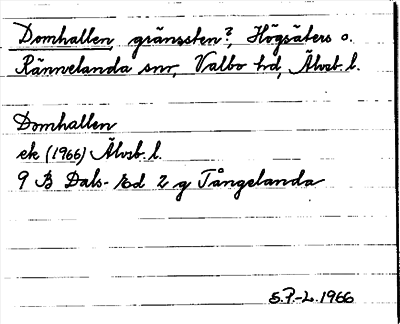 Domhallen, gränssten?, Högsäters o.
Rännelanda snr, Valbo hd, Älvsb. l.
Domhallen
ek (1966) Älvsb. l.
9 B Dals-Ed 2 g Tångelanda
S.P.-L. 1966